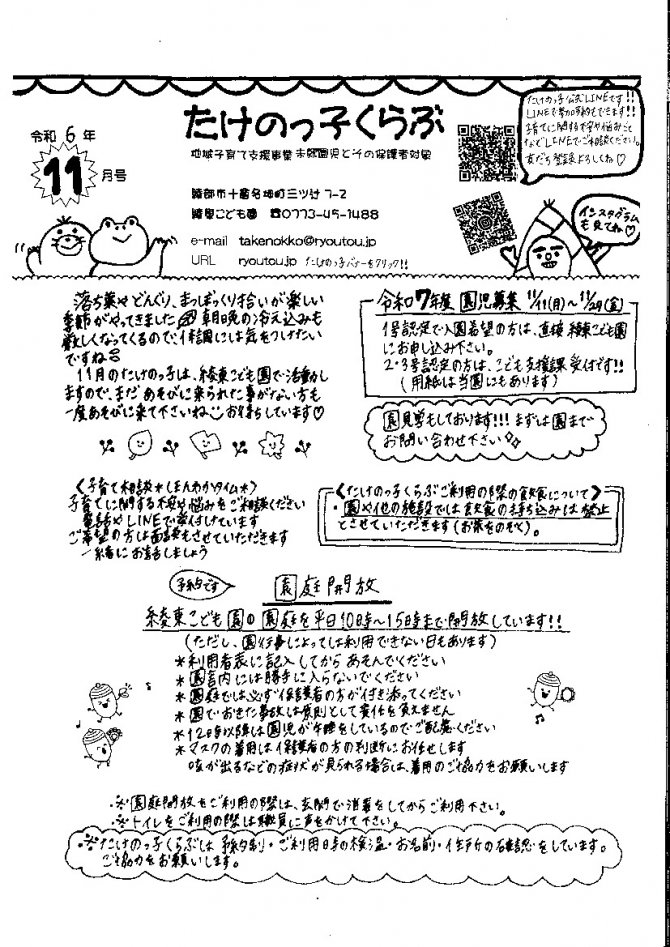 令和 6 年
11 月号
たけのっ子くらぶ
地域子育て支援事業 未就園児とその保護者対象
綾部市十倉名畑町三ツ辻 7-2
綾東こども園 ☎0773-45-1488
e-mail takenokko@ryoutou.jp
URL ryoutou.jp たけのっ子バナーをクリック!!
たけのっ子公式LINEです!!
LINEで参加予約もできます!!
子育てに関する不安や悩みごと
などLINEでご相談ください。
友だち登録よろしくね♡
インスタグラム
も見てね♡
落ち葉やどんぐり、まっぼっくり拾いが楽しい
季節がやってきました 朝晩の冷え込みも
厳しくなってくるので体調には気をつけたい
ですね
11月のたけのっ子は、綾東こども園で活動し
ますので、まだあそびに来られた事がない方も
一度あそびに来て下さいね お待ちしています♡
令和7年度 園児募集 11/11(月)~11/29(金)
1号認定で入園希望の方は、直接 綾東こども園
にお申し込み下さい。
2・3号認定の方は、こども支援課受付です!!
(用紙は当園にもあります)
園見学もしております!!! まずは園まで
お問い合わせ下さい
〈子育て相談*しまんわかタイム*〉
子育てに関する不安や悩みをご相談ください
電話やLINEで受付けています
ご希望の方は面談もさせていただきます
一緒にお話しましょう
〈たけのっ子くらぶご利用の際の飲食について〉
・園や他の施設では飲食の持ち込みは禁止
とさせていただきます(お茶をのぞく)。
予約です
園庭開放
綾東こども園の園庭を平日10時~15時まで開放しています!!
(ただし、園行事によっては利用できない日もあります)
*利用者表に記入してからあそんでください
*園舎内には勝手に入らないでください
*園庭では必ず保護者の方が付き添ってください
*園でおきた事故は原則として責任を負えません
*12時以降は園児が午睡をしているのでご配慮ください
*マスクの着用は保護者の方の判断にお任せします
咳が出るなどの症状が見られる場合は、着用のご協力をお願いします
・※園庭開放をご利用の際は、玄関で消毒をしてからご利用下さい。
・※トイレをご利用の際は職員に声をかけて下さい。
・※たけのっ子くらぶは予約制・ご利用日時の検温・お名前・住所の確認をしています。
ご協力をお願いします。